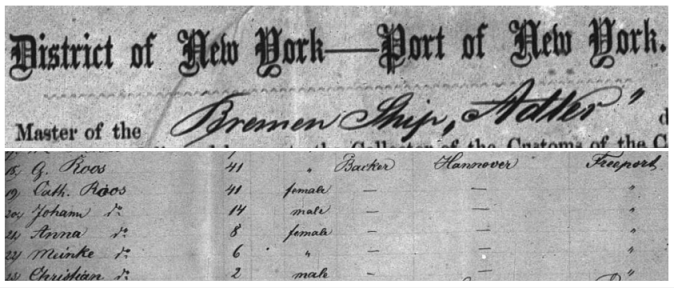 District of New York—Port of New York.
Master of the Bremen Ship "Adler" d
the Collector of the Customs of the C
18, G. Roos 41 " Backer Hannover Freeport
19, Cath. Roos 41 female — — "
20, Johann do 14 male — — "
21, Anna do 8 female — — "
22, Munke do 6 " — — "
23, Christian do 2 male — — "